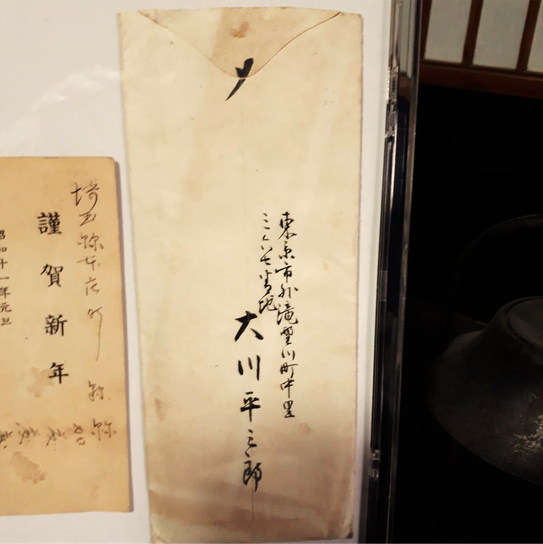 〆
東京市外滝野川町中里
三六七番地
大川平三郎
埼玉縣
謹賀新年
昭和十一年元旦